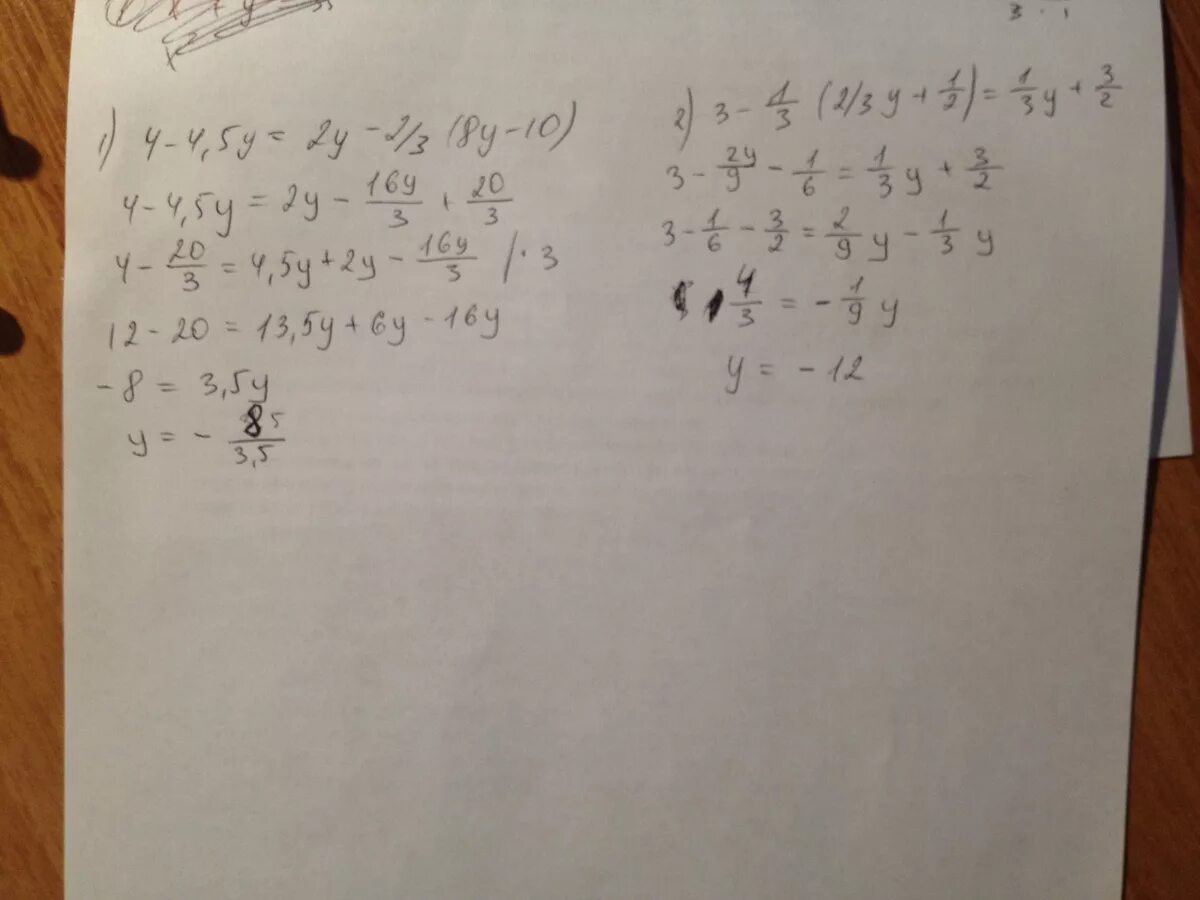 1) 4 - 4,5y = 2y - 2/3 (8y - 10)
4 - 4,5y = 2y - 16y/3 + 20/3
4 - 20/3 = 4,5y + 2y - 16y/3 / · 3
12 - 20 = 13,5y + 6y - 16y
- 8 = 3,5y
y = - 8/3,5
2) 3 - 1/3 (2/3 y + 1/2) = 1/3 y + 3/2
3 - 2y/9 - 1/6 = 1/3 y + 3/2
3 - 1/6 - 3/2 = 2/9 y - 1/3 y
4/3 = - 1/9 y
y = - 12